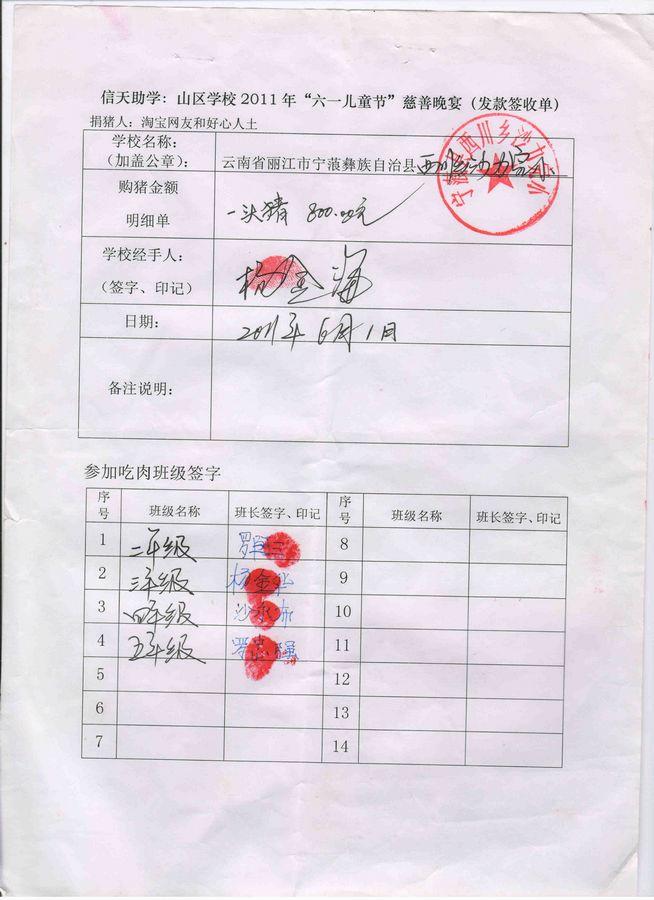 信天助学：山区学校 2011 年 “六一儿童节” 慈善晚宴（发款签收单）
捐猪人：淘宝网友和好心人士
学校名称：
（加盖公章）：
云南省丽江市宁蒗彝族自治县西川乡沙力完小
购猪金额
明细单
一头猪 800.00元
学校经手人：
（签字、印记）
杨金海
日期：
2011年6月1日
备注说明：
参加吃肉班级签字
序号 班级名称 班长签字、印记 序号 班级名称 班长签字、印记
1 二年级 8
2 三年级 杨金华 9
3 四年级 10
4 五年级 罗忠强 11
5 12
6 13
7 14